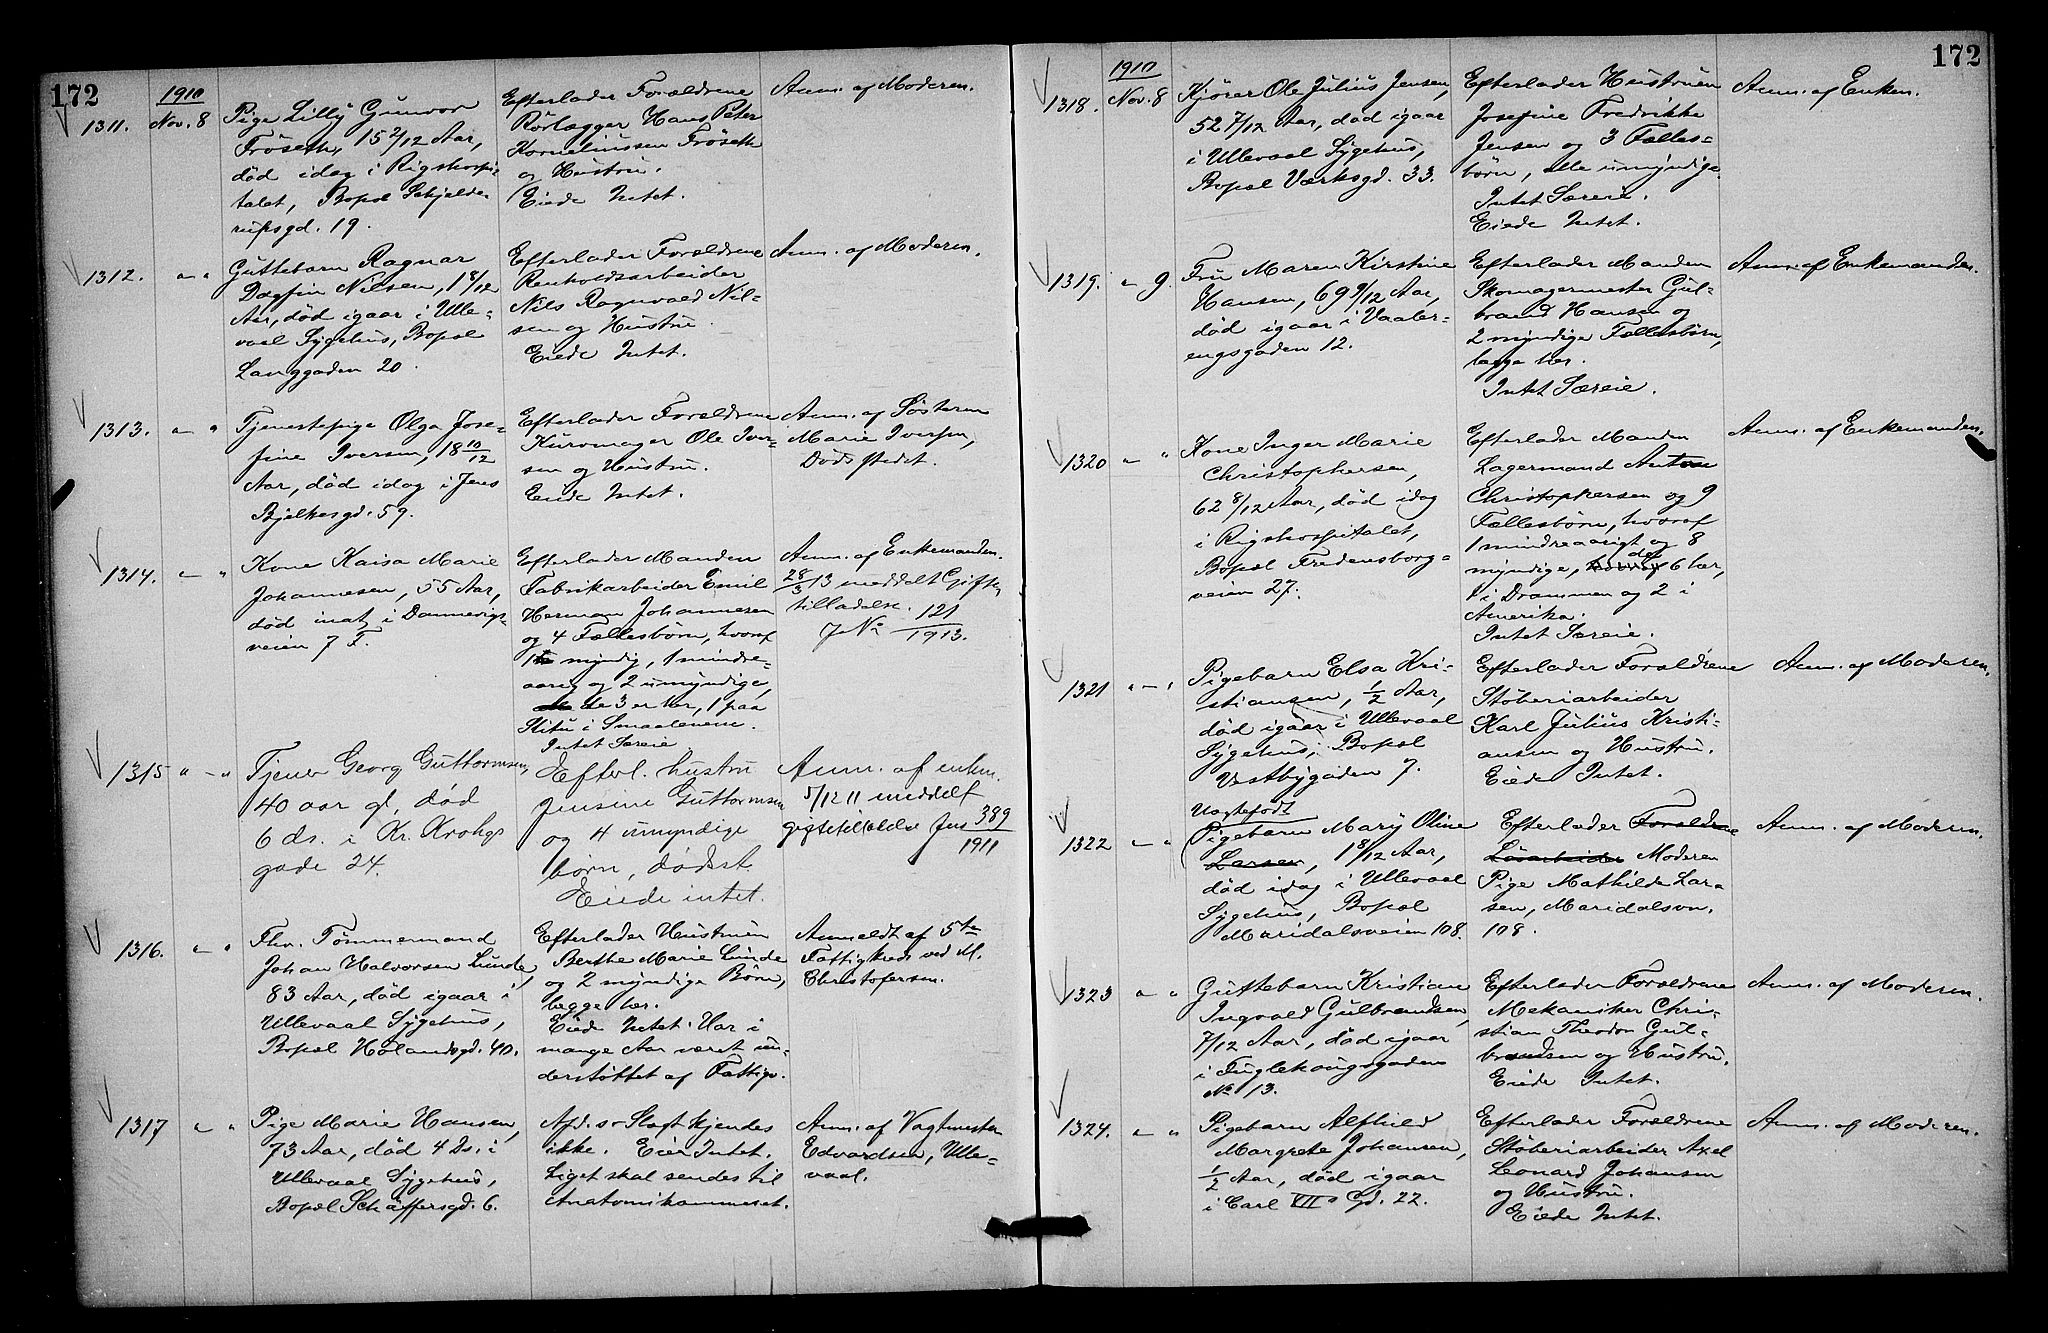 172
1910
1311. Nov. 8
Pige Lilly Gunvor
Fröseth, 15 2/12 Aar,
död idag i Rigshospi-
talet, Bopæl Schjelde-
rupsgd. 19.
Efterlader Forældrene
Rörlægger Hans Peter
Korneliussen Fröseth
og Hustru.
Eiede Intet.
Anm. af Moderen.
1312. " - "
Guttebarn Ragnar
Dagfin Nilsen, 1 8/12
Aar, död igaar i Ulle-
vaal Sygehus, Bopæl
Langgaden 20.
Efterlader Forældrene
Renholdsarbeider
Nils Ragnvald Nil-
sen og Hustru.
Eiede Intet.
Anm. af Moderen.
1313. " - "
Tjenestepige Olga Jose-
fine Iversen, 18 10/12
Aar, död idag i Jens
Bjelkesgd. 59.
Efterlader Forældrene
Kurvmager Ole Iver-
sen og Hustru.
Eiede Intet.
Anm. af Søsteren
Marie Iversen,
Dödsstedet.
1314. " - "
Kone Kaisa Marie
Johannesen, 55 Aar,
död inat i Dannevigs-
veien 7 F.
Efterlader Manden
Fabrikarbeider Emil
Herman Johannesen
og 4 Fællesbörn, hvoraf
1 myndig, 1 mindre-
aarig og 2 umyndige,
de 3 er her, 1 paa
Slitu i Smaalenene.
Intet Særeie
Anm. af Enkemanden.
28/3 13 meddelt Gifte
tilladelse.
J No 121/1913.
1315 " - "
Tjener Georg Guttormsen,
40 aar gl, död
6 ds. i Kr. Krohgs
gade 24.
Efterl. hustru
Jensine Guttormsen
og 4 umyndige
børn, dødsst.
Eiede intet.
Anm. af enken.
5/12 11 meddelt
giftetilladelse Jno 389/1911
1316. " - "
Fhv. Tömmermand
Johan Halvorsen Lunde,
83 Aar, död igaar i
Ullevaal Sygehus,
Bopæl Hølandsgd. 40.
Efterlader Hustruen
Berthe Marie Lunde
og 2 myndige Börn,
begge her.
Eiede Intet. Har i
mange Aar været un-
derstöttet af Fattigv.
Anmeldt af 5te
Fattigkreds ved M.
Christofersen.
1317 " - "
Pige Marie Hansen,
73 Aar, död 4 Ds. i
Ullevaal Sygehus,
Bopæl Schäffersgd. 6.
Afd.s Slegt kjendes
ikke. Eier Intet.
Liget skal sendes til
Anatomikammeret.
Anm. af Vagtmester
Edvardsen, Ulle-
vaal.
172
1910
1318. Nov. 8
Kjörer Ole Julius Jensen,
52 7/12 Aar, död igaar
i Ullevaal Sygehus,
Bopæl Værksgd. 33.
Efterlader Hustruen
Josefine Fredrikke
Jensen og 3 Fælles-
börn, alle umyndige.
Intet Særeie.
Eiede Intet.
Anm. af Enken.
1319. " 9.
Fru Maren Kirstine
Hansen, 69 9/12 Aar,
död igaar i Vaaler-
engsgaden 12.
Efterlader Manden
Skomagermester Gul-
brand Hansen og
2 myndige Fællesbörn,
begge her.
Intet Særeie.
Anm. af Enkemanden.
1320 " - "
Kone Inger Marie
Christophersen,
62 8/12 Aar, död idag
i Rigshospitalet,
Bopæl Fredensborg-
veien 27.
Efterlader Manden
Lagermand Anton
Christophersen og 9
Fællesbörn, hvoraf
1 mindreaarigt og 8
myndige, hvoraf de 6 her,
1 i Drammen og 2 i
Amerika.
Intet Særeie.
Anm. af Enkemanden.
1321 " - "
Pigebarn Elsa Kri-
stiansen, 1/2 Aar,
död igaar i Ullevaal
Sygehus, Bopæl
Vestbygaden 7.
Efterlader Forældrene
Støberiarbeider
Karl Julius Kristi-
ansen og Hustru.
Eiede Intet.
Anm. af Moderen.
1322 " - "
Uægtefødt
Pigebarn Mary Oline
Larsen, 1 8/12 Aar,
död idag i Ullevaal
Sygehus, Bopæl
Maridalsveien 108.
Efterlader Forældrene
Løsarbeider Moderen
Pige Mathilde Lar-
sen, Maridalsvn.
108.
Anm. af Moderen.
1323 " - "
Guttebarn Kristian
Ingvald Gulbrandsen,
7/12 Aar, död igaar
i Fuglehaugsgaden
No 13.
Efterlader Forældrene
Mekaniker Chri-
stian Theodor Gul-
brandsen og Hustru.
Eiede Intet.
Anm. af Moderen.
1324. " - "
Pigebarn Alfhild
Margrete Johansen,
1/2 Aar, död igaar
i Carl VII s Gd. 22.
Efterlader Forældrene
Støberiarbeider Axel
Leonard Johansen
og Hustru.
Eiede Intet.
Anm. af Moderen.